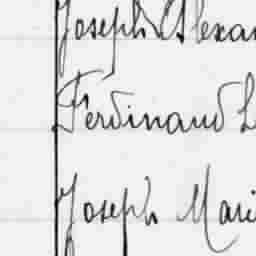 Joseph Alexan
Ferdinand L
Joseph Mari